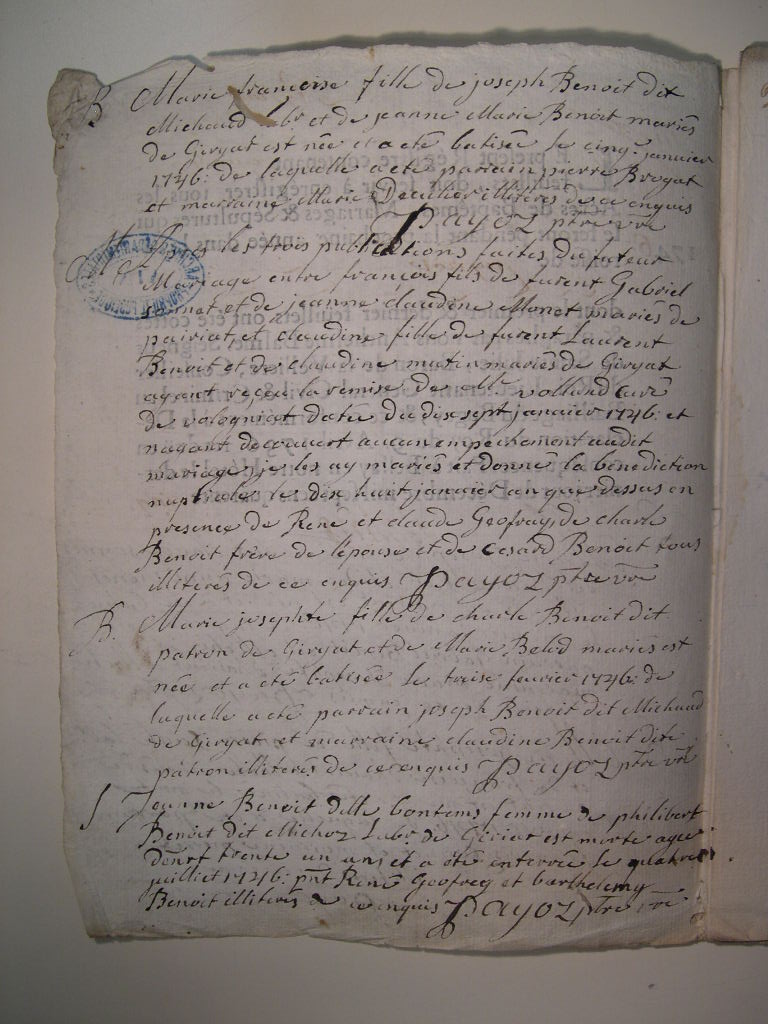 B Marie francoise fille de joseph Benoit dit
Michaud labr et de jeanne Marie Benoit mariés
de Giryat est née et a été batisée le cinq janvier
1746: de laquelle a eté parrain pierre Brogat
et marraine Marie illitérés de ce enquis
Payoz ptre vre
M les trois publications faites du futeur
Mariage entre françois fils de furent Gabriel
et de jeanne claudine Monet mariés de
pairiat, et claudine fille de furent Laurent
Benoit et de claudine mutin mariés de Giryat
ayant reçeu la remise de Mr volland curé
de vologniat datée du dix sept janvier 1746: et
nayant decouvert aucun empechement audit
mariage, je les ay mariés et donnés la bénédiction
nuptiales le dix huit janvier an que dessus en
presence de René et claude Geofray, de charle
Benoit frère de l'épouse et de Cesard Benoit tous
illiterés de ce enquis Payoz ptre vre
B. Marie josephte fille de charle Benoit dit
patron de Giryat et de Marie Belod mariés est
née et a été batisée le treise fevrier 1746: de
laquelle a eté parrain joseph Benoit dit Michaud
de Giryat et marraine claudine Benoit dite
patron illiterés de ce enquis Payoz ptre vre
S Jeanne Benoit ditte bontems femme de philibert
Benoit dit Michoz Labr de Giriat est morte agée
denrf trente un ans et a été enterrée le quatre
juilliet 1746: pnt René Geofrey et barthelemy
Benoit illiterés de ce enquis Payoz ptre vre